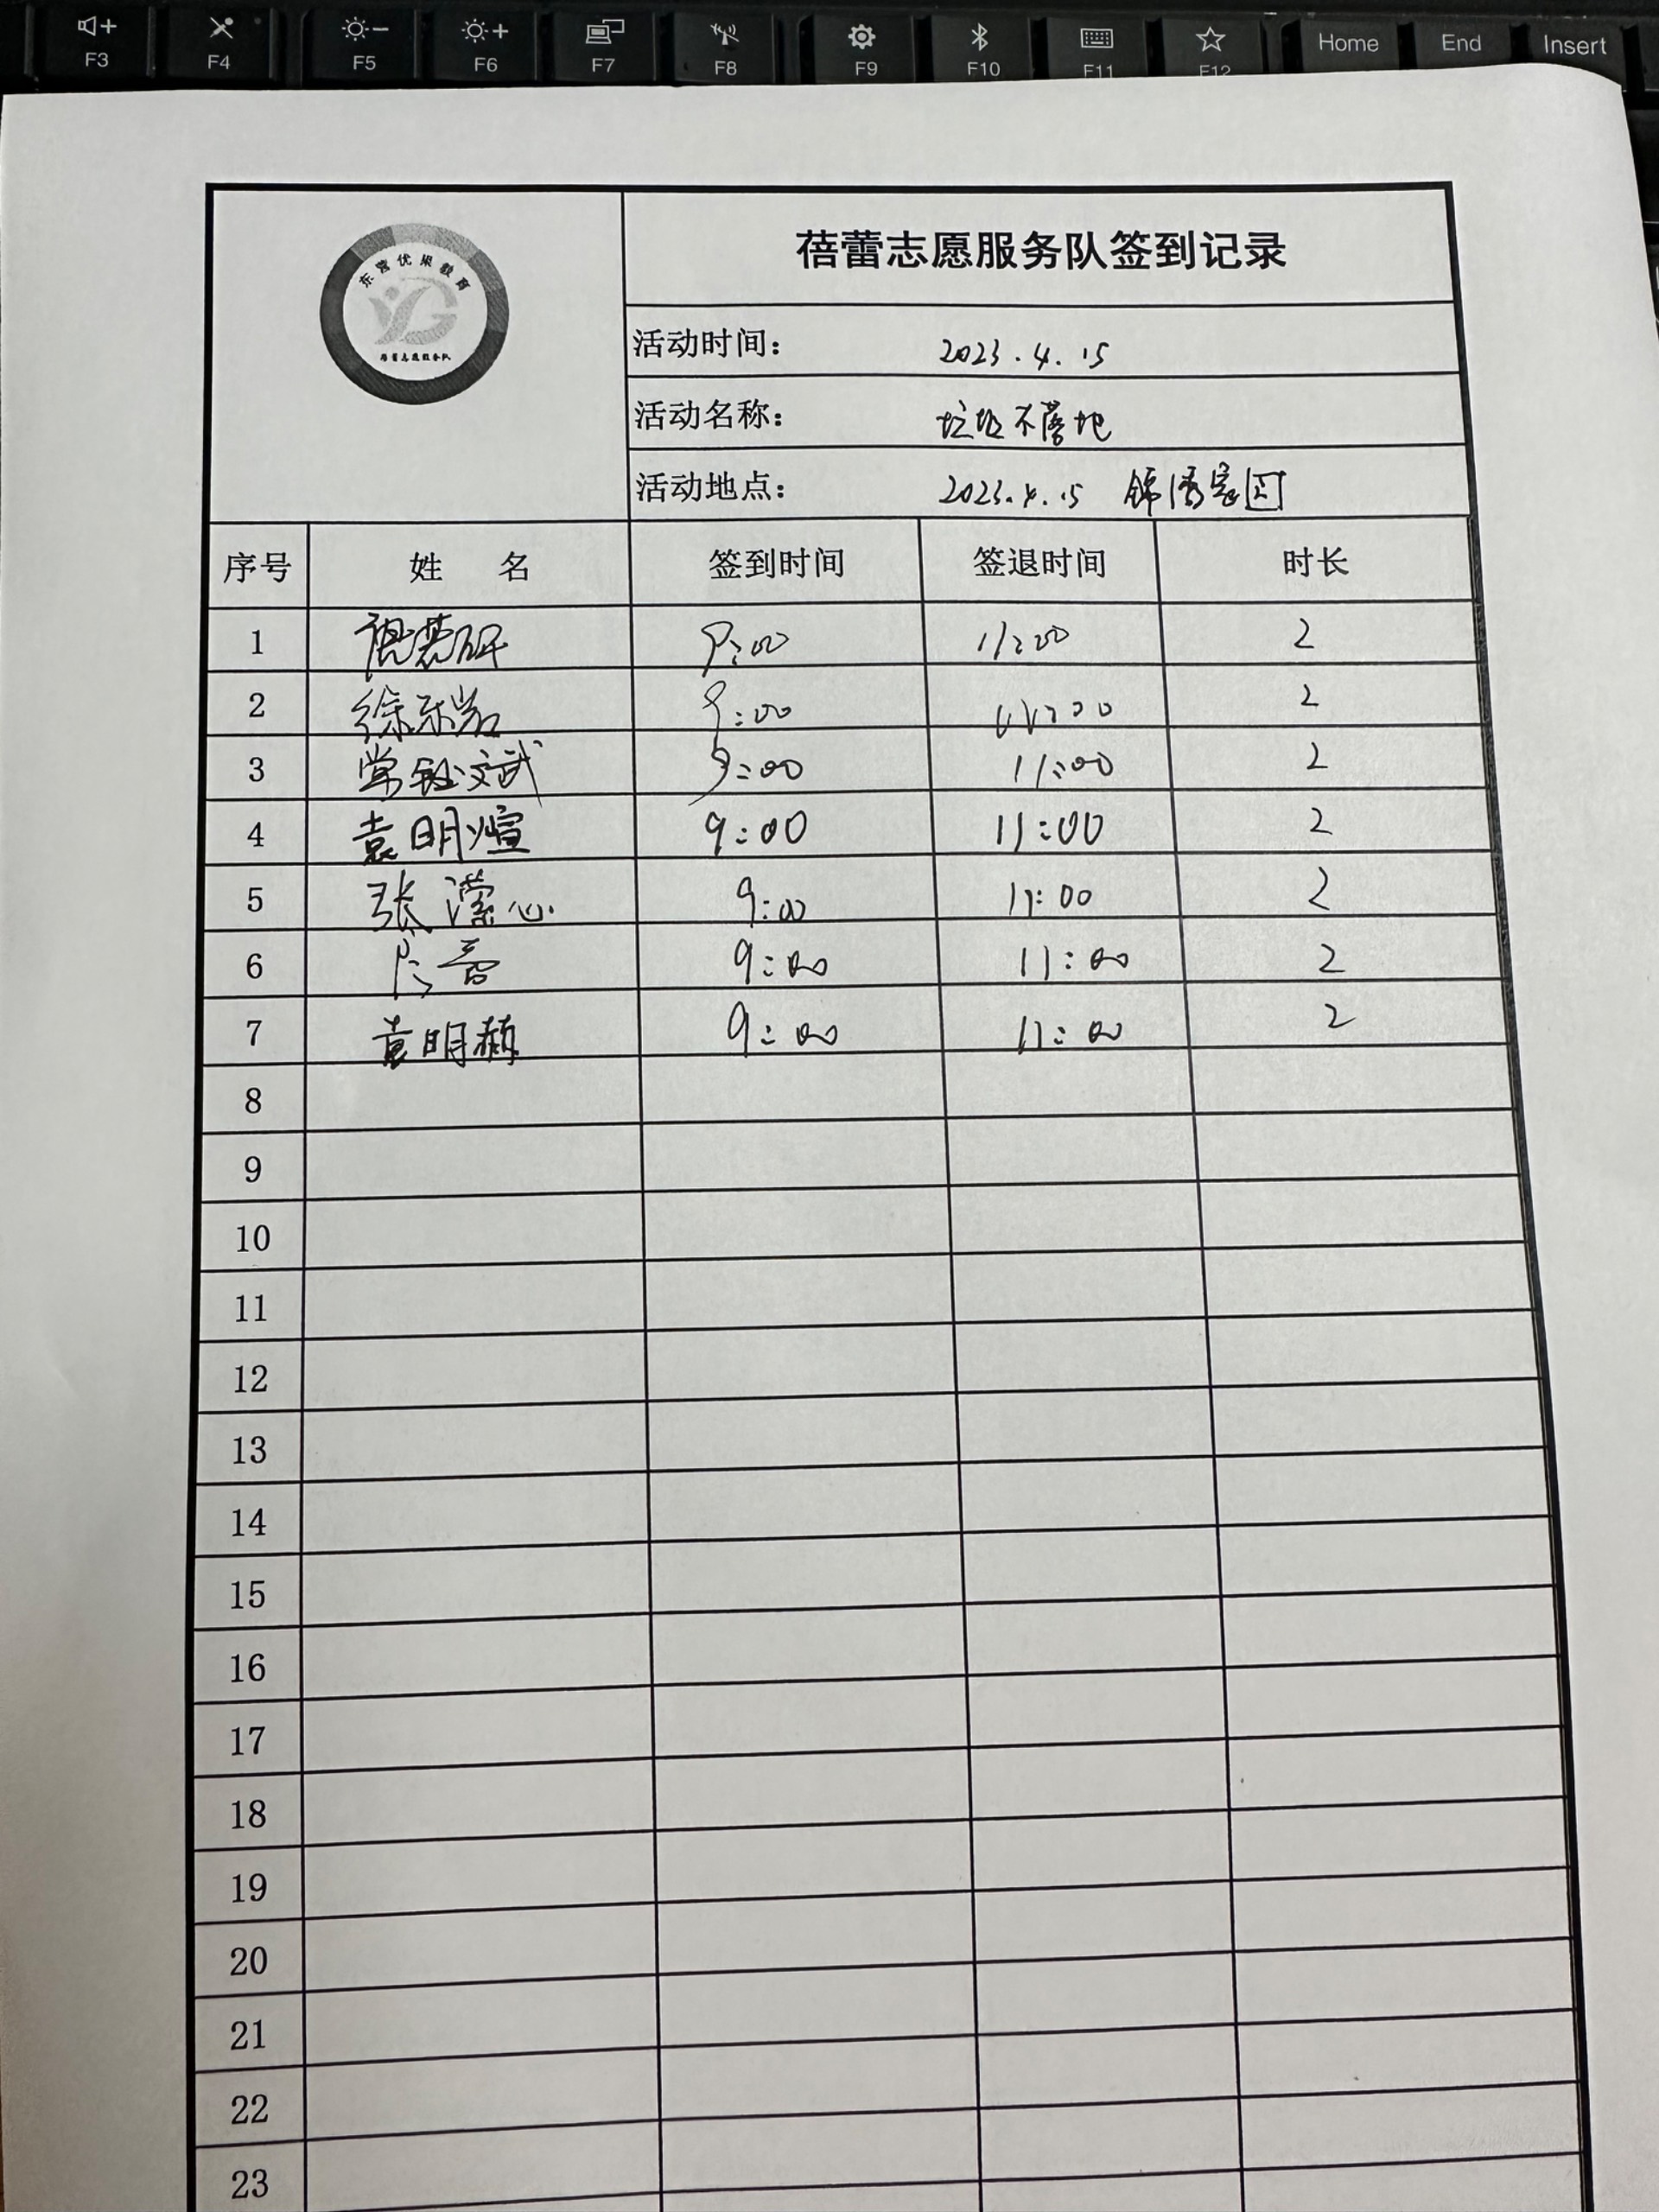 F3 F4 F5 F6 F7 F8 F9 F10 F11 F12 Home End Insert
东营优果教育
蓓蕾志愿服务队
蓓蕾志愿服务队签到记录
活动时间： 2023.4.15
活动名称： 垃圾不落地
活动地点： 2023.4.15 锦绣家园
序号 姓 名 签到时间 签退时间 时长
1 9:00 11:00 2
2 徐乐岩 9:00 11:00 2
3 常钰斌 9:00 11:00 2
4 袁明煊 9:00 11:00 2
5 张潆心 9:00 11:00 2
6 9:00 11:00 2
7 袁明赫 9:00 11:00 2
8
9
10
11
12
13
14
15
16
17
18
19
20
21
22
23